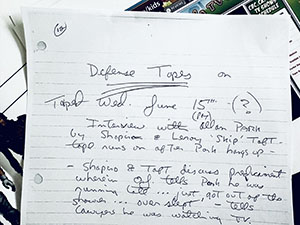 /kids
CBC CA
(12)
Defense Tapes on
Taped Wed. June 15th - (?)
(PM)
Interview with Allan Park
by Shapiro & Leroy "Skip" Taft -
tape runs on after Park hangs up -
- Shapiro & Taft discuss predicament
wherein OJ tells Park he was
running late ... just got out of the
shower ... over slept - tells
lawyers he was watching TV.